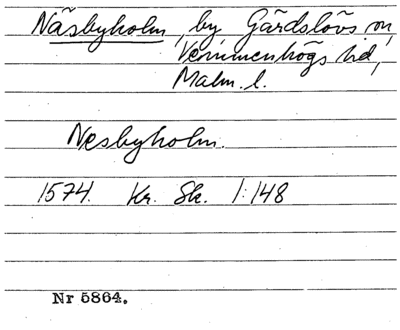 Näsbyholm, by, Gärdslövs sn,
Vemmenhögs hd,
Malm. l.
Nesbyholm.
1574. Kr. Sk. 1:148
Nr 5864.